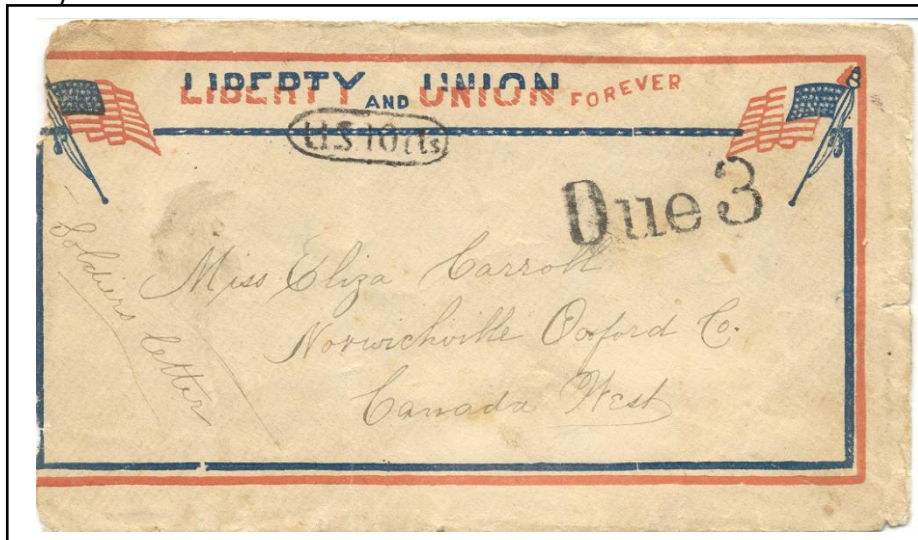 LIBERTY AND UNION FOREVER
U.S 10 cts
Due 3
Soldiers letter
Miss Eliza Carroll
Norwichville Oxford Co.
Canada West